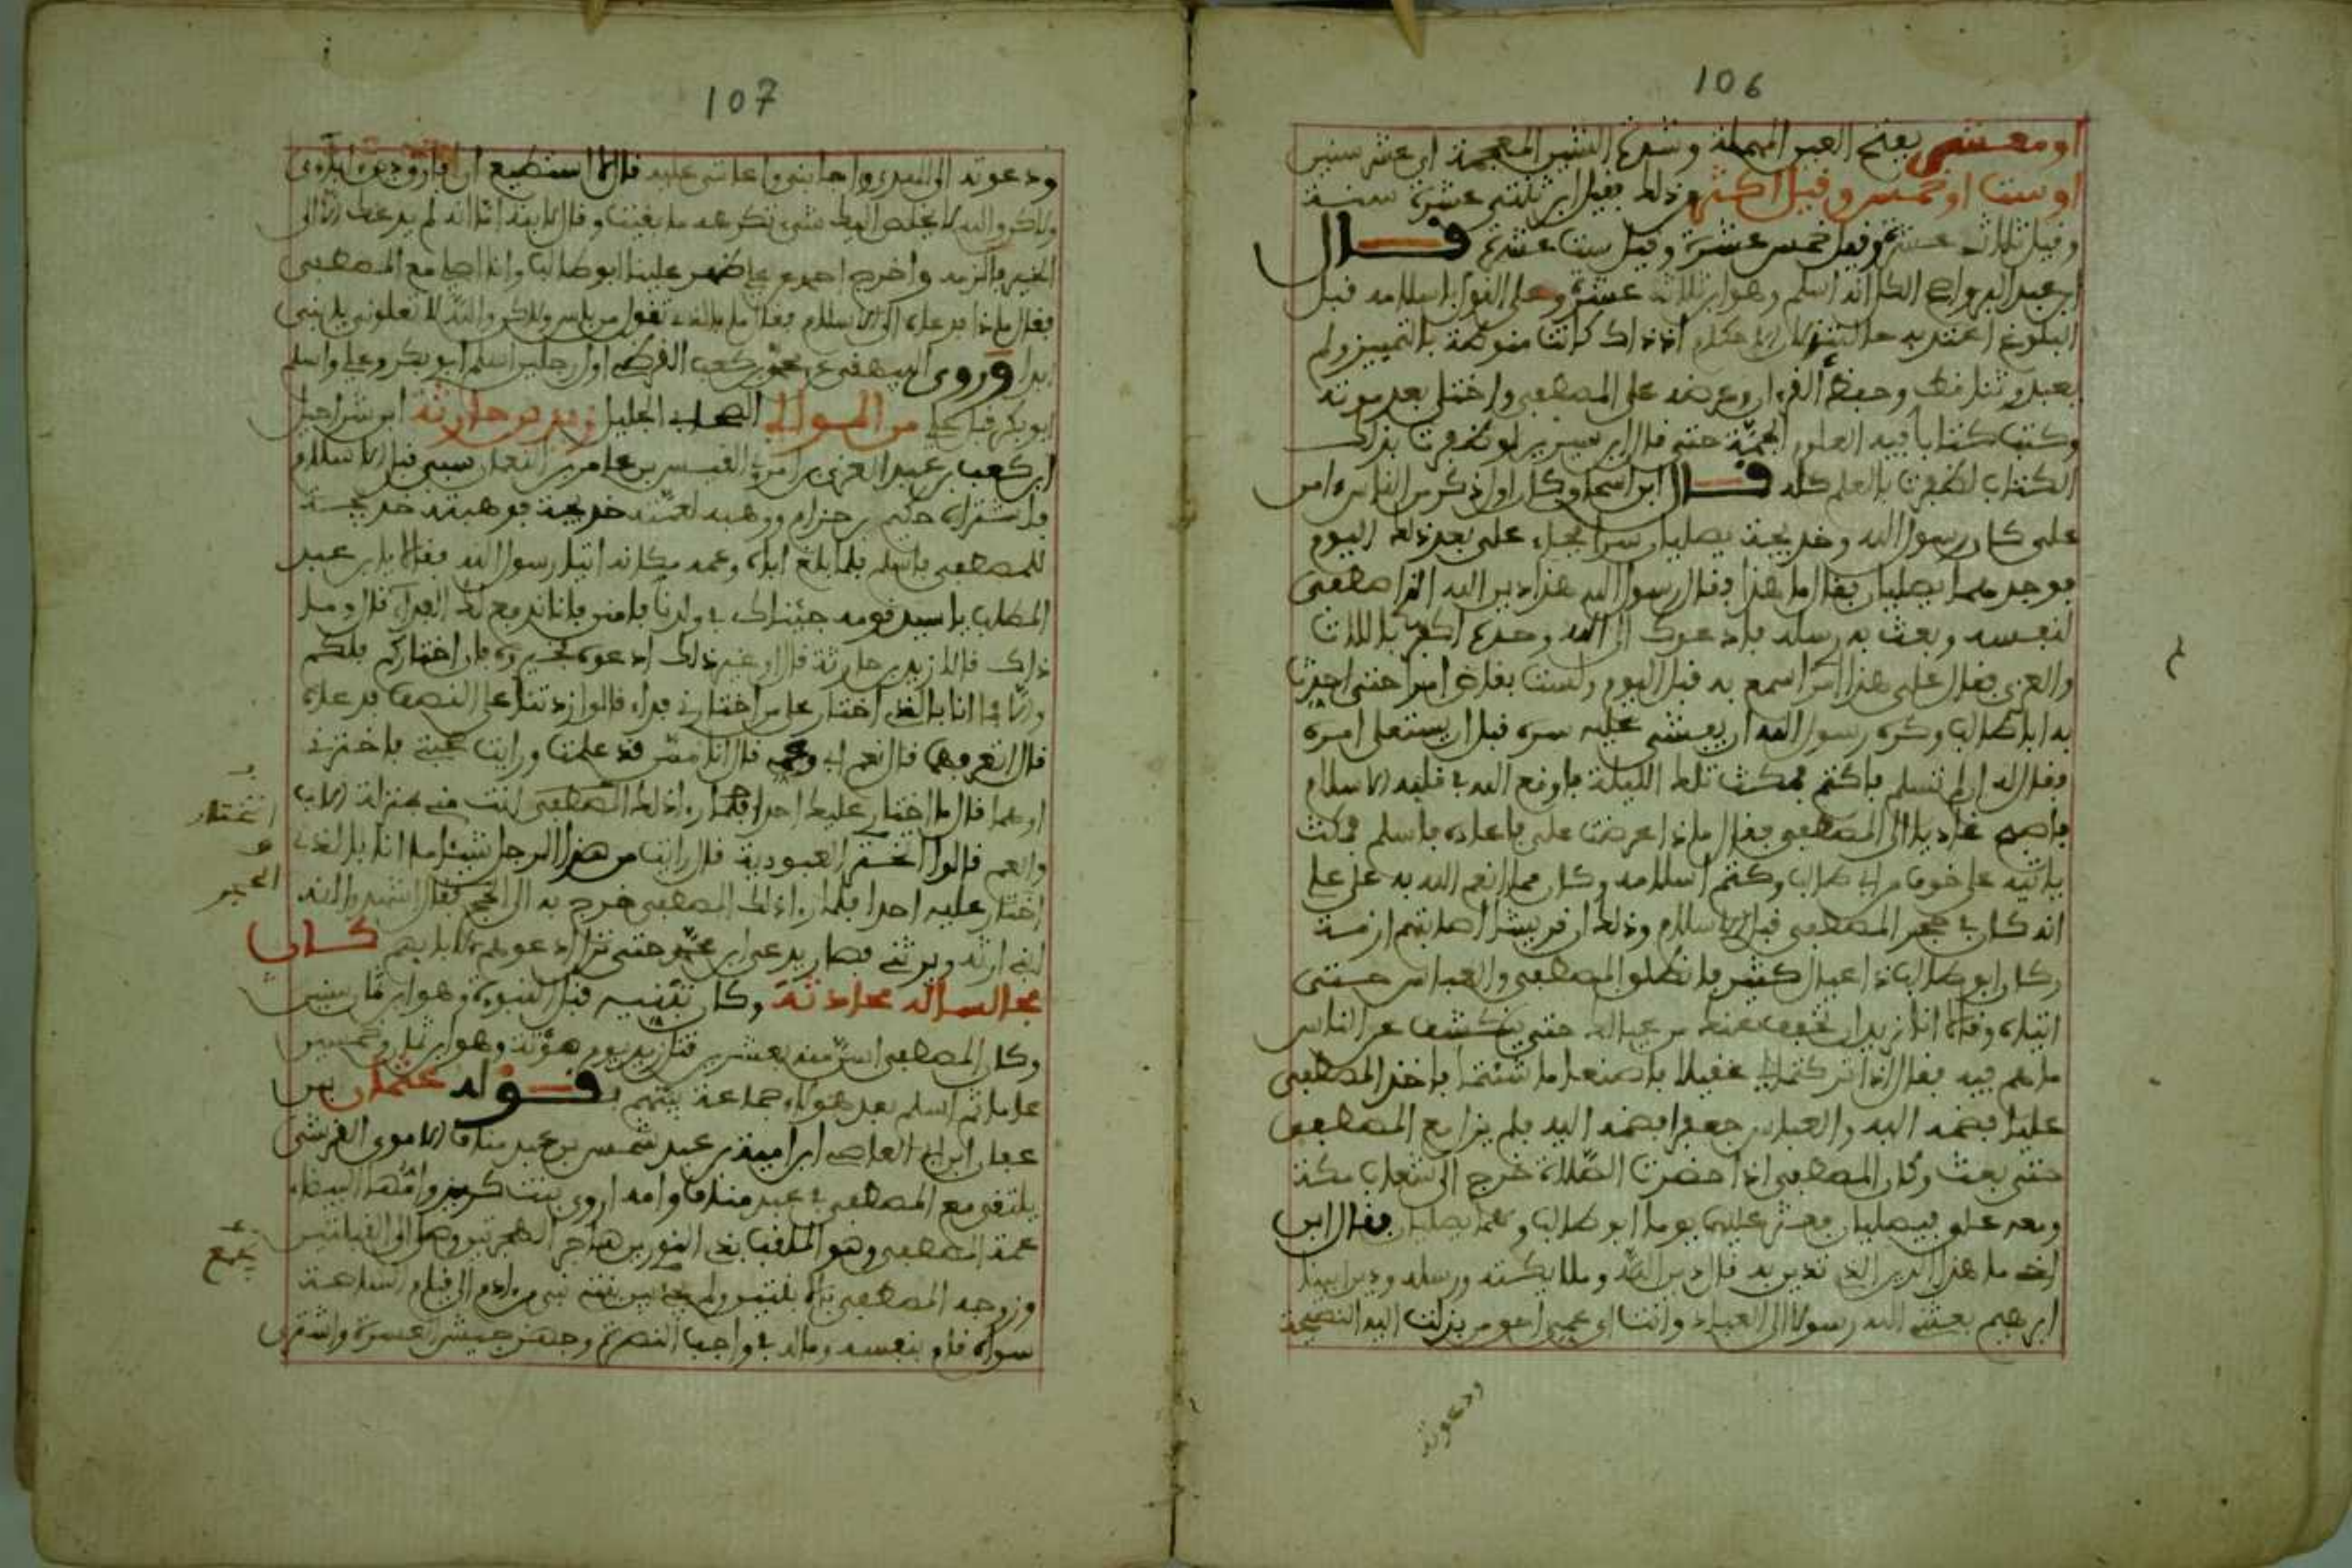 106
او معشى بفتح العين المهملة وشدة الشين المعجمة اى عشر سنين
او ست او خمس وقيل اكثر من ذلك فقيل ابن ثلثى عشرة سنة
وقيل ثلاث عشرة وقيل خمس عشرة وقيل ست عشرة قال
ابن عبد البر واصح انه اسلم وهو ابن ثلاث عشرة وعلى القول باسلامه قبل
البلوغ اعتد به حالتئذ لان الاحكام اذ ذاك كانت منوطة بالتمييز ولم
يعبد وثنا فط وحفظ القرءان وعرضه على المصطفى واختلى بعد موته
وكتب كتابا فيه العلوم الجمة حتى قال ابن سيرين لو ظفرت بذلك
الكتاب لظفرت بالعلم كله قال ابن اسحاق وكان اول ذكر من الناس ءامن
على كان رسول الله وخديجة يصليان سرا فجاء على بعد ذلك اليوم
فوجدهما يصليان فقال ما هذا فقال رسول الله هذا دين الله الذى اصطفى
لنفسه وبعث به رسله فادعوك الى الله وحده واكفر باللات
والعزى فقال على هذا امر لم اسمع به قبل اليوم ولست بقاض امرا حتى احدث
به ابا طالب وكره رسول الله ان يفشى عليه سره قبل ان يستعلى امره
فقال له ان لم تسلم فاكتم فمكث تلك الليلة فاوقع الله فى قلبه الاسلام
فاصبح غاديا الى المصطفى فقال ماذا عرضت على فاعاده فاسلم فمكث
ياتيه على خوف من ابى طالب وكتم اسلامه وكان مما انعم الله به على على
انه كان فى حجر المصطفى قبل الاسلام وذلك ان قريشا اصابتهم ازمة
وكان ابو طالب ذا عيال كثير فانطلق المصطفى والعباس حتى
اتياه وقالا انا نريد ان نخفف عنك من عيالك حتى ينكشف عن الناس
ما هم فيه فقال اذا تركتما لى عقيلا فاصنعا ما شئتما فاخذ المصطفى
عليا فضمه اليه والعباس جعفرا فضمه اليه فلم يزل مع المصطفى
حتى بعث وكان المصطفى اذا حضرت الصلاة خرج الى شعاب مكة
ومعه على فيصليان فعثر عليهما يوما ابو طالب وهما يصليان فقال ابن
اخى ما هذا الدين الذى تدين به قال دين الله وملائكته ورسله ودين ابينا
ابرهيم بعثنى الله رسولا الى العباد وانت اى عمى احق من بذلت اليه النصيحة
ودعوته
107
ودعوته الى الهدى واجابنى واعاننى عليه قال لا استطيع ان افارق دين اباءى
ولاكن والله لا يخلص اليك شىء تكرهه ما بقيت وقال لابنه اما انه لم يدعك الا الى
الخير فالزمه واخرج احمد عن على ظهر علينا ابو طالب وانا اصلى مع المصطفى
فقال ماذا فدعاه الى الاسلام فقال ما بالذى تقول من باس ولاكن والله لا تعلونى
ابدا وروى البيهقى عن محمد بن كعب القرظى اول رجلين اسلم ابو بكر وعلى واسلم
ابو بكر قبل على من الموالى الصحابى الجليل زيد بن حارثة ابن شراحيل
ابن كعب بن عبد العزى بن امرئ القيس بن عامر بن النعمان سبى قبل الاسلام
فاشتراه حكيم بن حزام ووهبه لعمته خديجة فوهبته خديجة
للمصطفى فاسلم فلما بلغ اباه وعمه مكانه اتيا رسول الله فقالا يا ابن عبد
المطلب يا سيد قومه جئناك فى ولدنا فامنن فانا ندفع لك الفداء قال وما
ذاك قالا زيد بن حارثة قال او غير ذلك ادعوه فخيروه فان اختاركم فلكم
والا فما انا بالذى اختار على من اختارنى فداء قالوا زدتنا على النصف فدعاه
قال اتعرفهما قال نعم ابى وعمى قال انا من قد علمت ورايت صحبتى فاخترنى
او هما قال ما اختار عليك احدا انت منى بمنزلة الاب
والعم قالوا اتختر العبودية قال رايت من هذا الرجل شيئا ما انا بالذى
اختار عليه احدا فلما راى ذلك المصطفى خرج به الى الحجر فقال اشهدوا انه
ابنى ارثه ويرثنى فصار يدعى ابن محمد حتى نزل ادعوهم لابايهم كان
وكان تبنيه قبل النبوة وهو ابن ثمان سنين
وكان المصطفى اسن منه بعشر قتل زيد يوم مؤتة وهو ابن خمس وخمسين
عاما ثم اسلم بعد هؤلاء جماعة قوله عثمان بن
عفان ابن ابى العاصى ابن امية بن عبد شمس بن عبد مناف الاموى القرشى
يلتقى مع المصطفى فى عبد مناف وامه اروى بنت كريز وامها البيضاء
عمة المصطفى وهو الملقب بذى النورين هاجر الهجرتين وصلى الى القبلتين
وزوجه المصطفى ولم يجمع بين بنتى نبى من ءادم الى قيام الساعة
سواه قام بنفسه وماله فى واجب النصرة وجهز جيش العسرة واشترى
اتختار
الحجر
يجمع